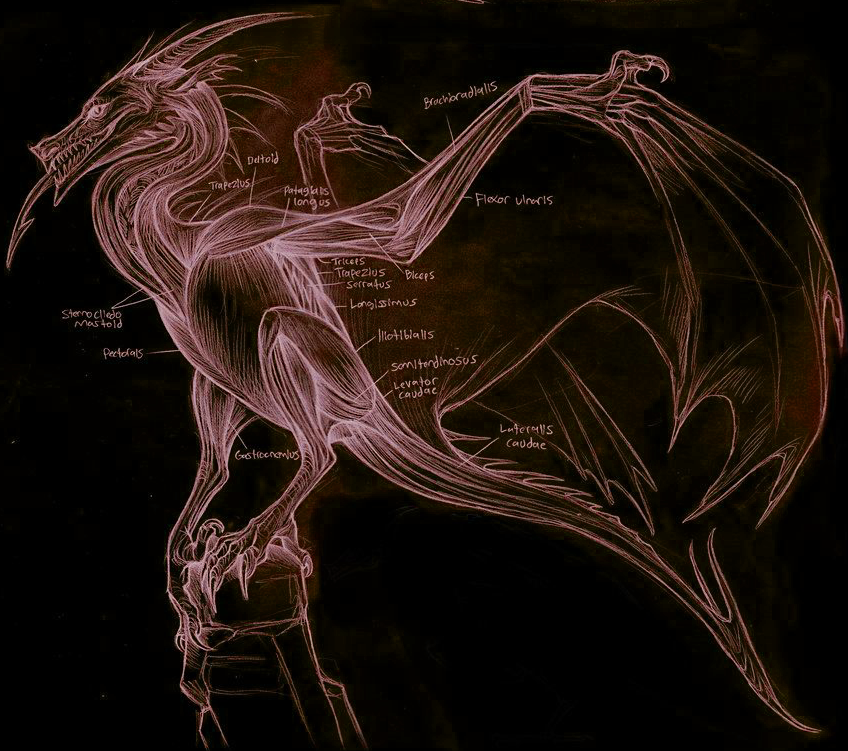 Brachioradialis
Deltoid
Trapezius
Patagialis
longus
Flexor ulnaris
Triceps
Trapezius
serratus
Biceps
Longissimus
Sternocliedo
mastoid
Pectorals
Iliotibialis
semitendinosus
Levator
caudae
Lateralis
caudae
Gastrocnemius